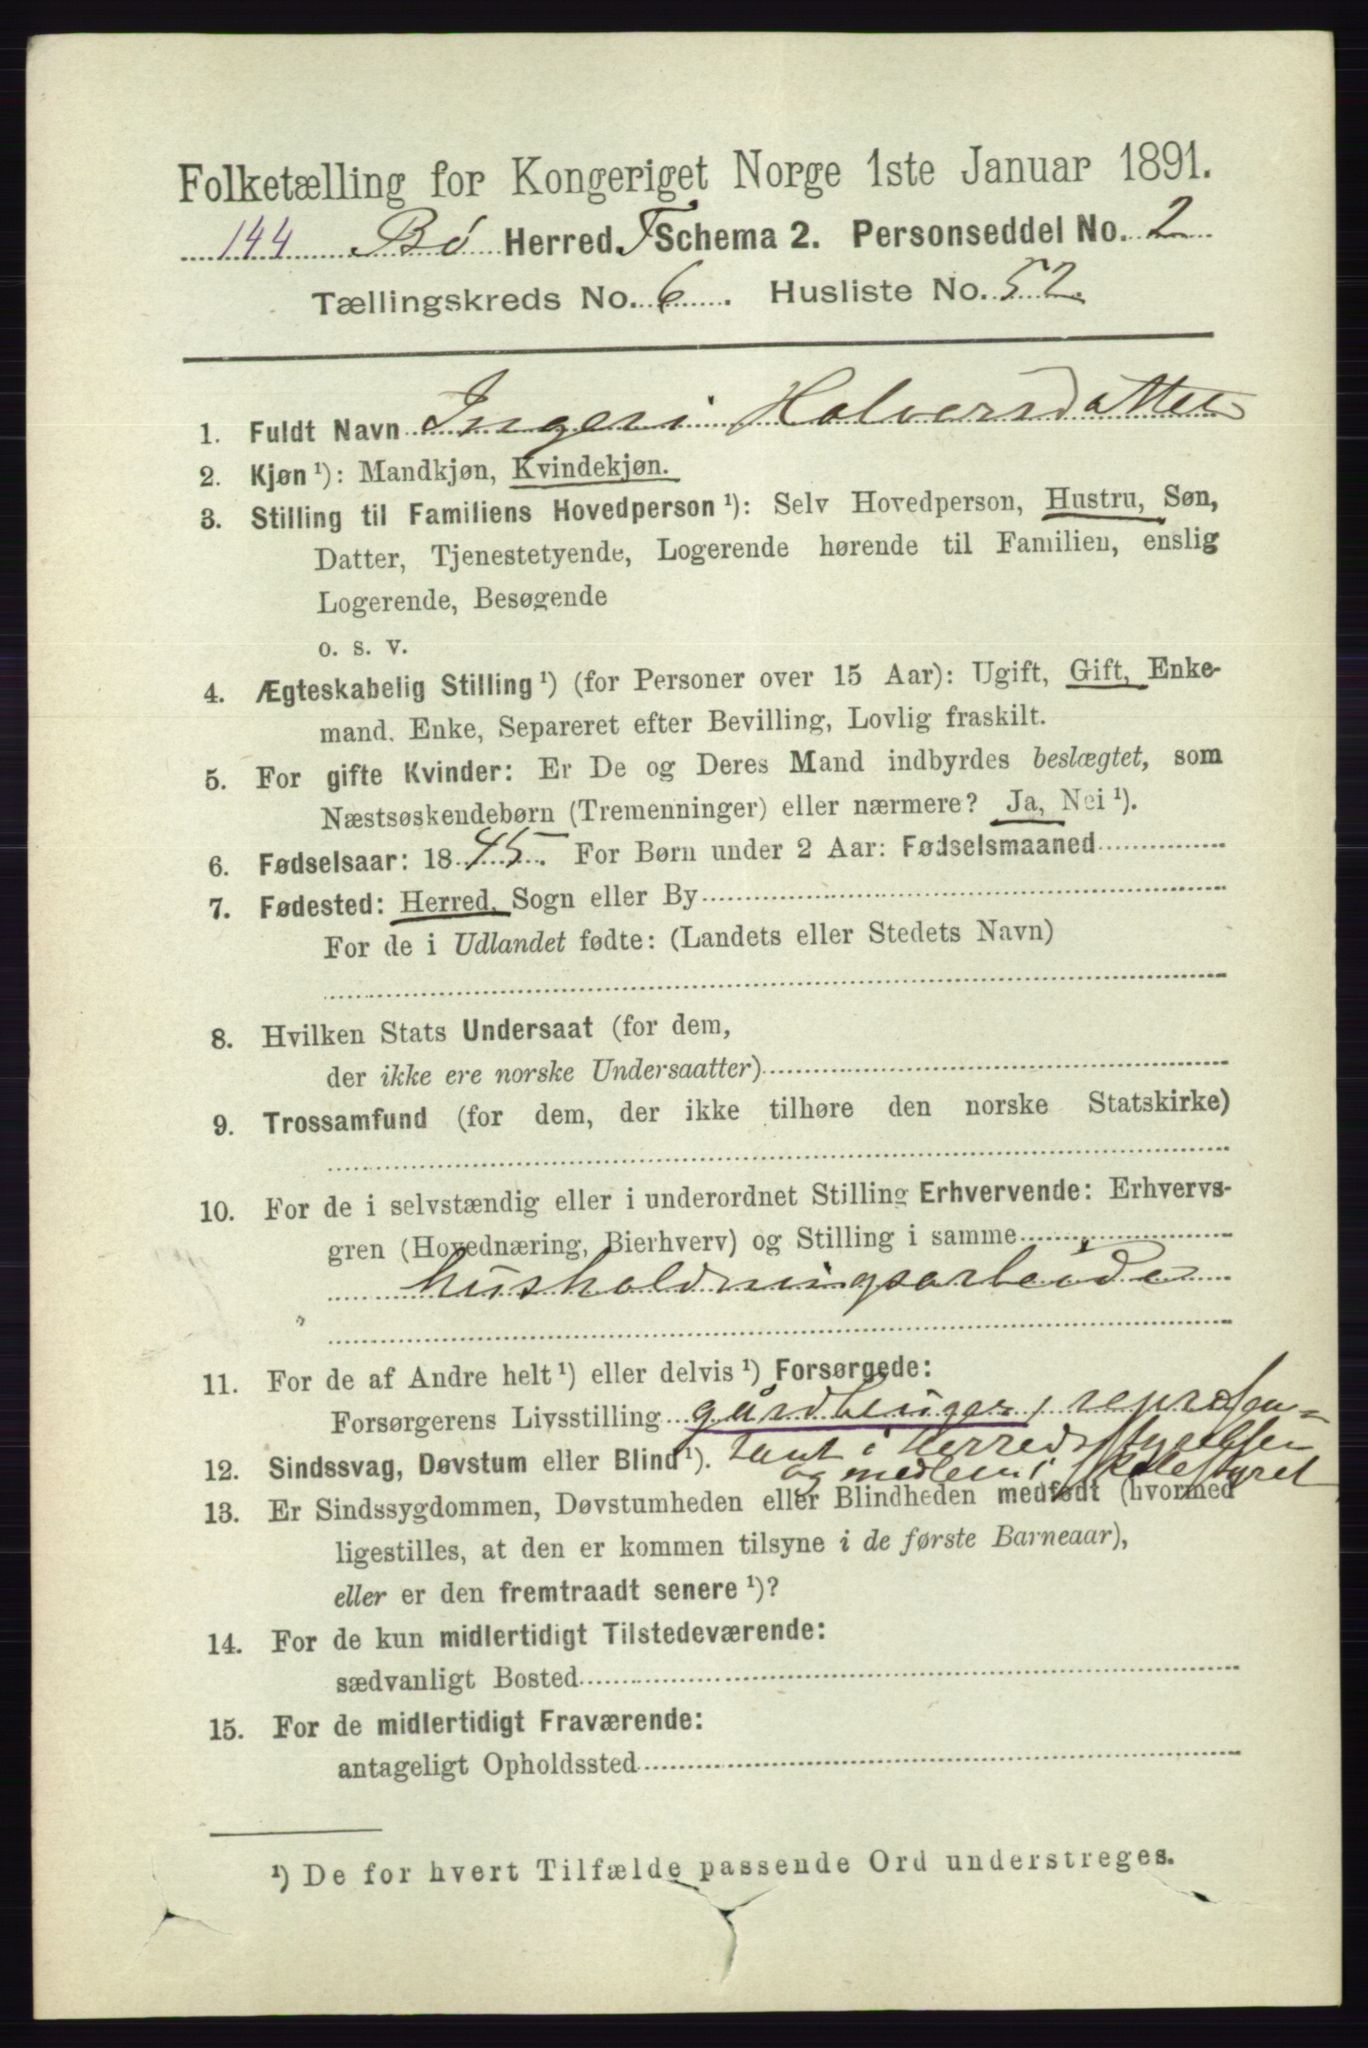 Folketælling for Kongeriget Norge 1ste Januar 1891.
144 Bø Herred. T Schema 2. Personseddel No. 2
Tællingskreds No. 6. Husliste No. 52.
1. Fuldt Navn Ingeri Halvorsdatter
2. Kjøn ¹): Mandkjøn, Kvindekjøn.
3. Stilling til Familiens Hovedperson ¹): Selv Hovedperson, Hustru, Søn,
Datter, Tjenestetyende, Logerende hørende til Familien, enslig
Logerende, Besøgende
o. s. v.
4. Ægteskabelig Stilling ¹) (for Personer over 15 Aar): Ugift, Gift, Enke-
mand. Enke, Separeret efter Bevilling, Lovlig fraskilt.
5. For gifte Kvinder: Er De og Deres Mand indbyrdes beslægtet, som
Næstsøskendebørn (Tremenninger) eller nærmere? Ja, Nei ¹).
6. Fødselsaar: 1845. For Børn under 2 Aar: Fødselsmaaned
7. Fødested: Herred, Sogn eller By
For de i Udlandet fødte: (Landets eller Stedets Navn)
8. Hvilken Stats Undersaat (for dem,
der ikke ere norske Undersaatter)
9. Trossamfund (for dem, der ikke tilhøre den norske Statskirke)
10. For de i selvstændig eller i underordnet Stilling Erhvervende: Erhvervs-
gren (Hovednæring, Bierhverv) og Stilling i samme
husholdningsarbeide
11. For de af Andre helt ¹) eller delvis ¹) Forsørgede:
Forsørgerens Livsstilling gårdbruger, repræsen-
tant i Herredsstyrelsen
12. Sindssvag, Døvstum eller Blind ¹). og medlem i Skolestyret
13. Er Sindssygdommen, Døvstumheden eller Blindheden medfødt (hvormed
ligestilles, at den er kommen tilsyne i de første Barneaar),
eller er den fremtraadt senere ¹)?
14. For de kun midlertidigt Tilstedeværende:
sædvanligt Bosted
15. For de midlertidigt Fraværende:
antageligt Opholdssted
¹) De for hvert Tilfælde passende Ord understreges.